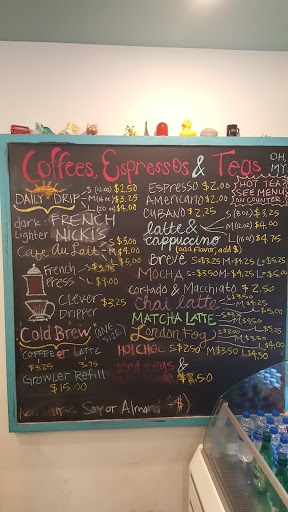 Coffees, Espressos & Teas
OH, MY
DAILY DRIP S (12oz) $2.50
M (16oz) $3.25
L (20oz) $4.00
dark: FRENCH
Lighter: NICKI'S
Cafe du Lait S $3.00
M $4.00
L $5.00
French Press S $3.75
L $7.00
Clever Dripper 3.25
Cold Brew (ONE SIZE)
COFFEE or LATTE
$3.25 3.75
Growler Refill
$15.00
Soy or Almond
ESPRESSO $2.00
AMERICANO $2.00
CUBANO $2.25
HOT TEA?
SEE MENU
ON COUNTER
latte &
cappuccino
S (8oz) $3.25
M (12oz) $4.00
L (16oz) $4.75
(add flavor, add $)
Breve S=$3.25 M=$4.25 L=$5.25
MOCHA S=$3.50 M=$4.25 L=$5.00
Cortado & Macchiato $2.50
chai latte S $3.50
M $4.25
L $5.00
MATCHA LATTE
London Fog
L $4.00
HOT CHOC. S $2.50 M $3.50 L $4.50
Iced teas &